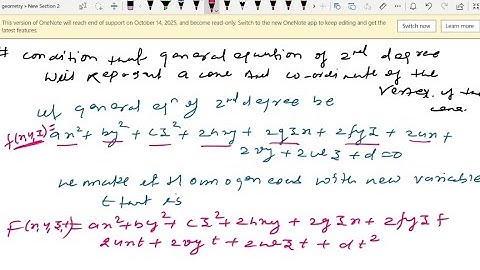 geometry > New Section 2
This version of OneNote will reach end of support on October 14, 2025, and become read-only. Switch to the new OneNote app to keep editing and get the latest features.
Switch now
Learn more
# condition that general equation of 2nd degree
will represent a cone and co-ordinate of the
vertex of the cone.
let general eqn of 2nd degree be
f(x,y,z) ≡ ax²+ by²+ cz²+ 2hxy + 2gzx + 2fyz + 2ux+
2vy + 2wz + d=0
we make it Homogeneous with new variable
t that is
F(x,y,z,t)= ax²+by²+ cz²+2hxy + 2gzx+ 2fyz+
2uxt + 2vyt + 2wzt + dt²